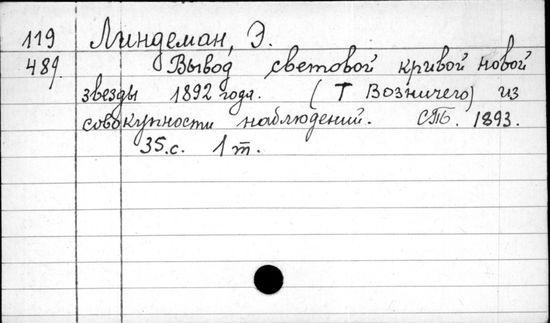 119 Линдеман, Э.
489. Вывод световой кривой новой
звезды 1892 года. (Т Возничего) из
совокупности наблюдений. СПБ. 1893.
35.с. 1 т.